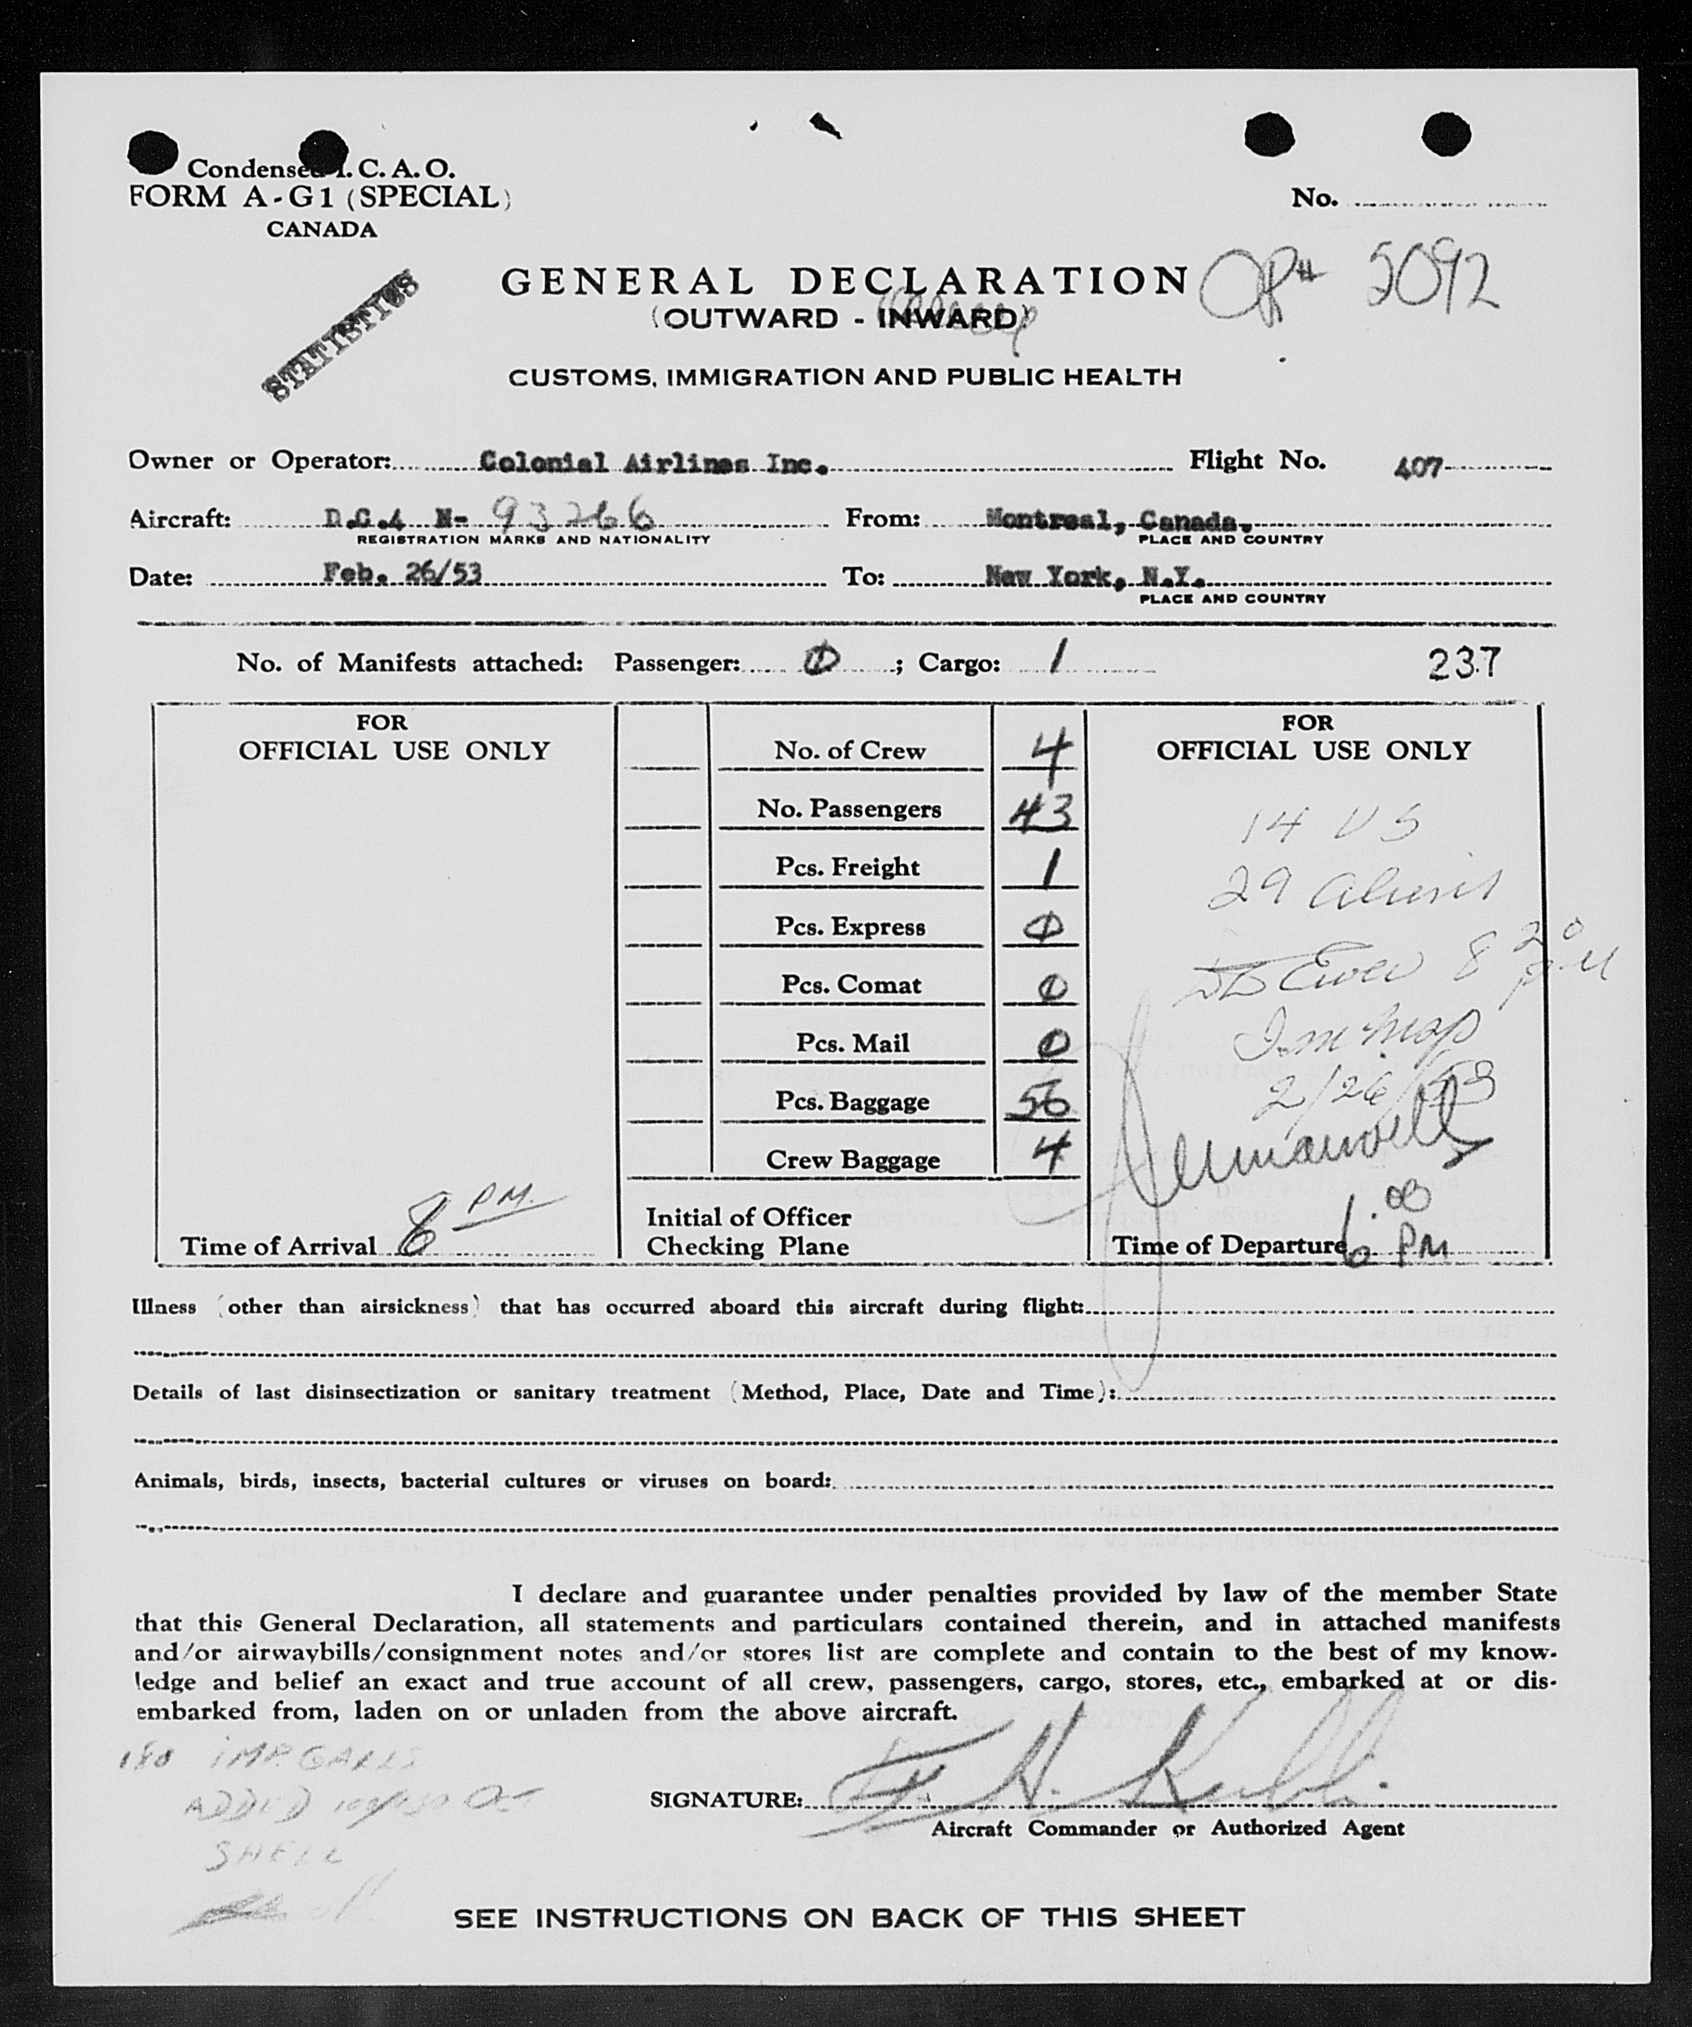 Condensed I. C. A. O.
FORM A-G1 (SPECIAL)
CANADA
No.
OP# 5092
STATISTICS
GENERAL DECLARATION
(OUTWARD - INWARD)
CUSTOMS, IMMIGRATION AND PUBLIC HEALTH
Owner or Operator: Colonial Airlines Inc. Flight No. 407
Aircraft: D.C.4 N- 93266 From: Montreal, Canada.
REGISTRATION MARKS AND NATIONALITY PLACE AND COUNTRY
Date: Feb. 26/53 To: New York, N.Y.
PLACE AND COUNTRY
No. of Manifests attached: Passenger: 0 ; Cargo: 1 237
FOR
OFFICIAL USE ONLY
No. of Crew 4
No. Passengers 43
Pcs. Freight 1
Pcs. Express 0
Pcs. Comat 0
Pcs. Mail 0
Pcs. Baggage 56
Crew Baggage 4
Initial of Officer
Checking Plane
FOR
OFFICIAL USE ONLY
14 US
29 Aliens
8 20 PM
2/26/53
Time of Arrival 8 PM.
Time of Departure 6:00 PM
Illness (other than airsickness) that has occurred aboard this aircraft during flight:
Details of last disinsectization or sanitary treatment (Method, Place, Date and Time):
Animals, birds, insects, bacterial cultures or viruses on board:
I declare and guarantee under penalties provided by law of the member State
that this General Declaration, all statements and particulars contained therein, and in attached manifests
and/or airwaybills/consignment notes and/or stores list are complete and contain to the best of my know-
ledge and belief an exact and true account of all crew, passengers, cargo, stores, etc., embarked at or dis-
embarked from, laden on or unladen from the above aircraft.
180 IMP. GALLS
ADDED 100/130 Oct
SHELL
SIGNATURE:
Aircraft Commander or Authorized Agent
SEE INSTRUCTIONS ON BACK OF THIS SHEET